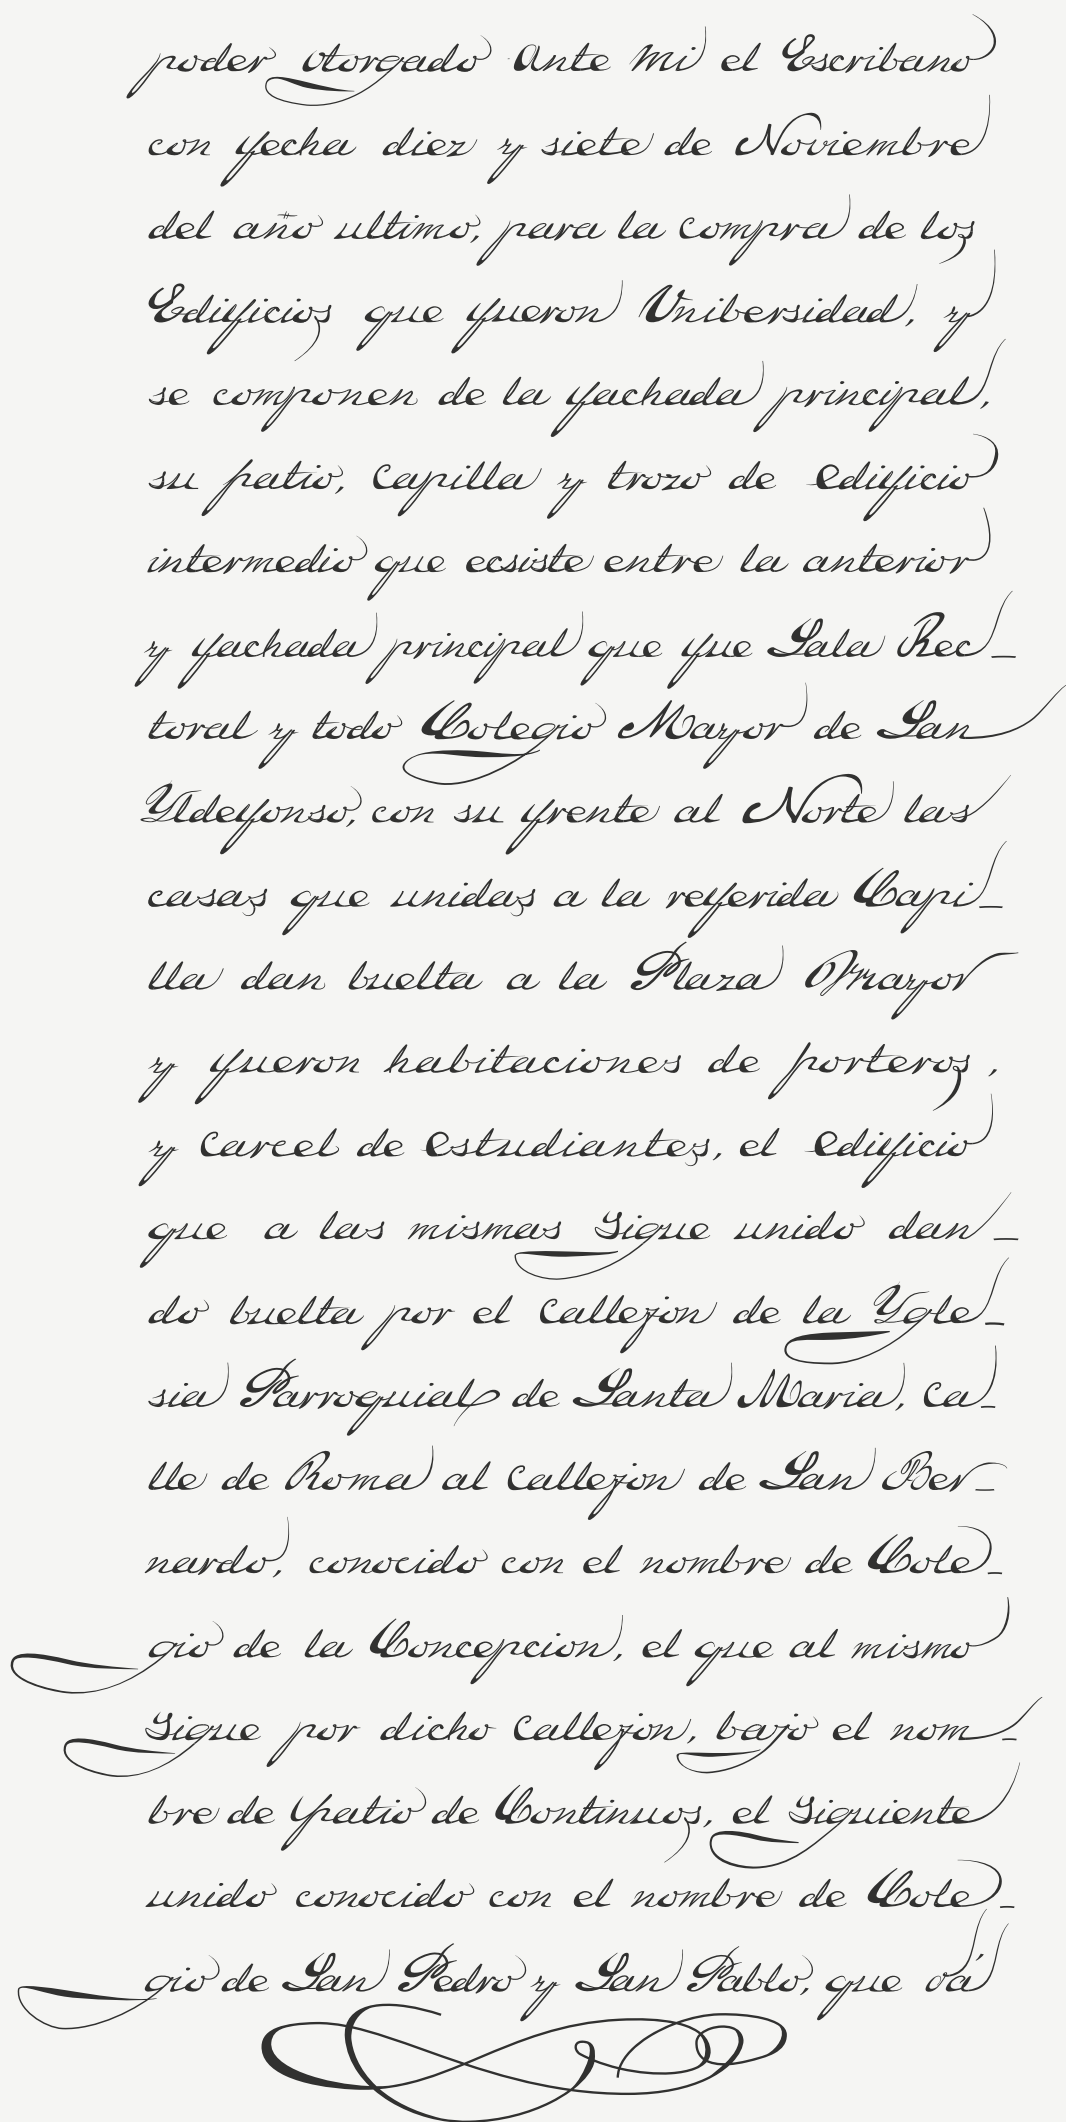 poder otorgado Ante Mi el Escribano
con fecha diez y siete de Noviembre
del año ultimo, para la Compra de los
Edificios que fueron Unibersidad, y
se componen de la fachada principal,
su patio, Capilla y trozo de Edificio
intermedio que ecsiste entre la anterior
y fachada principal que fue Sala Rec_
toral y todo Colegio Mayor de San
Yldefonso, con su frente al Norte las
casas que unidas a la referida Capi_
lla dan buelta a la Plaza Mayor
y fueron habitaciones de porteros,
y Carcel de Estudiantes, el Edificio
que a las mismas Sigue unido dan_
do buelta por el Callejon de la Ygle_
sia Parroquial de Santa Maria, Ca_
lle de Roma al Callejon de San Ber_
nardo, conocido con el nombre de Cole_
gio de la Concepcion, el que al mismo
Sigue por dicho Callejon, bajo el nom_
bre de Patio de Continuos, el Siguiente
unido conocido con el nombre de Cole_
gio de San Pedro y San Pablo, que vá